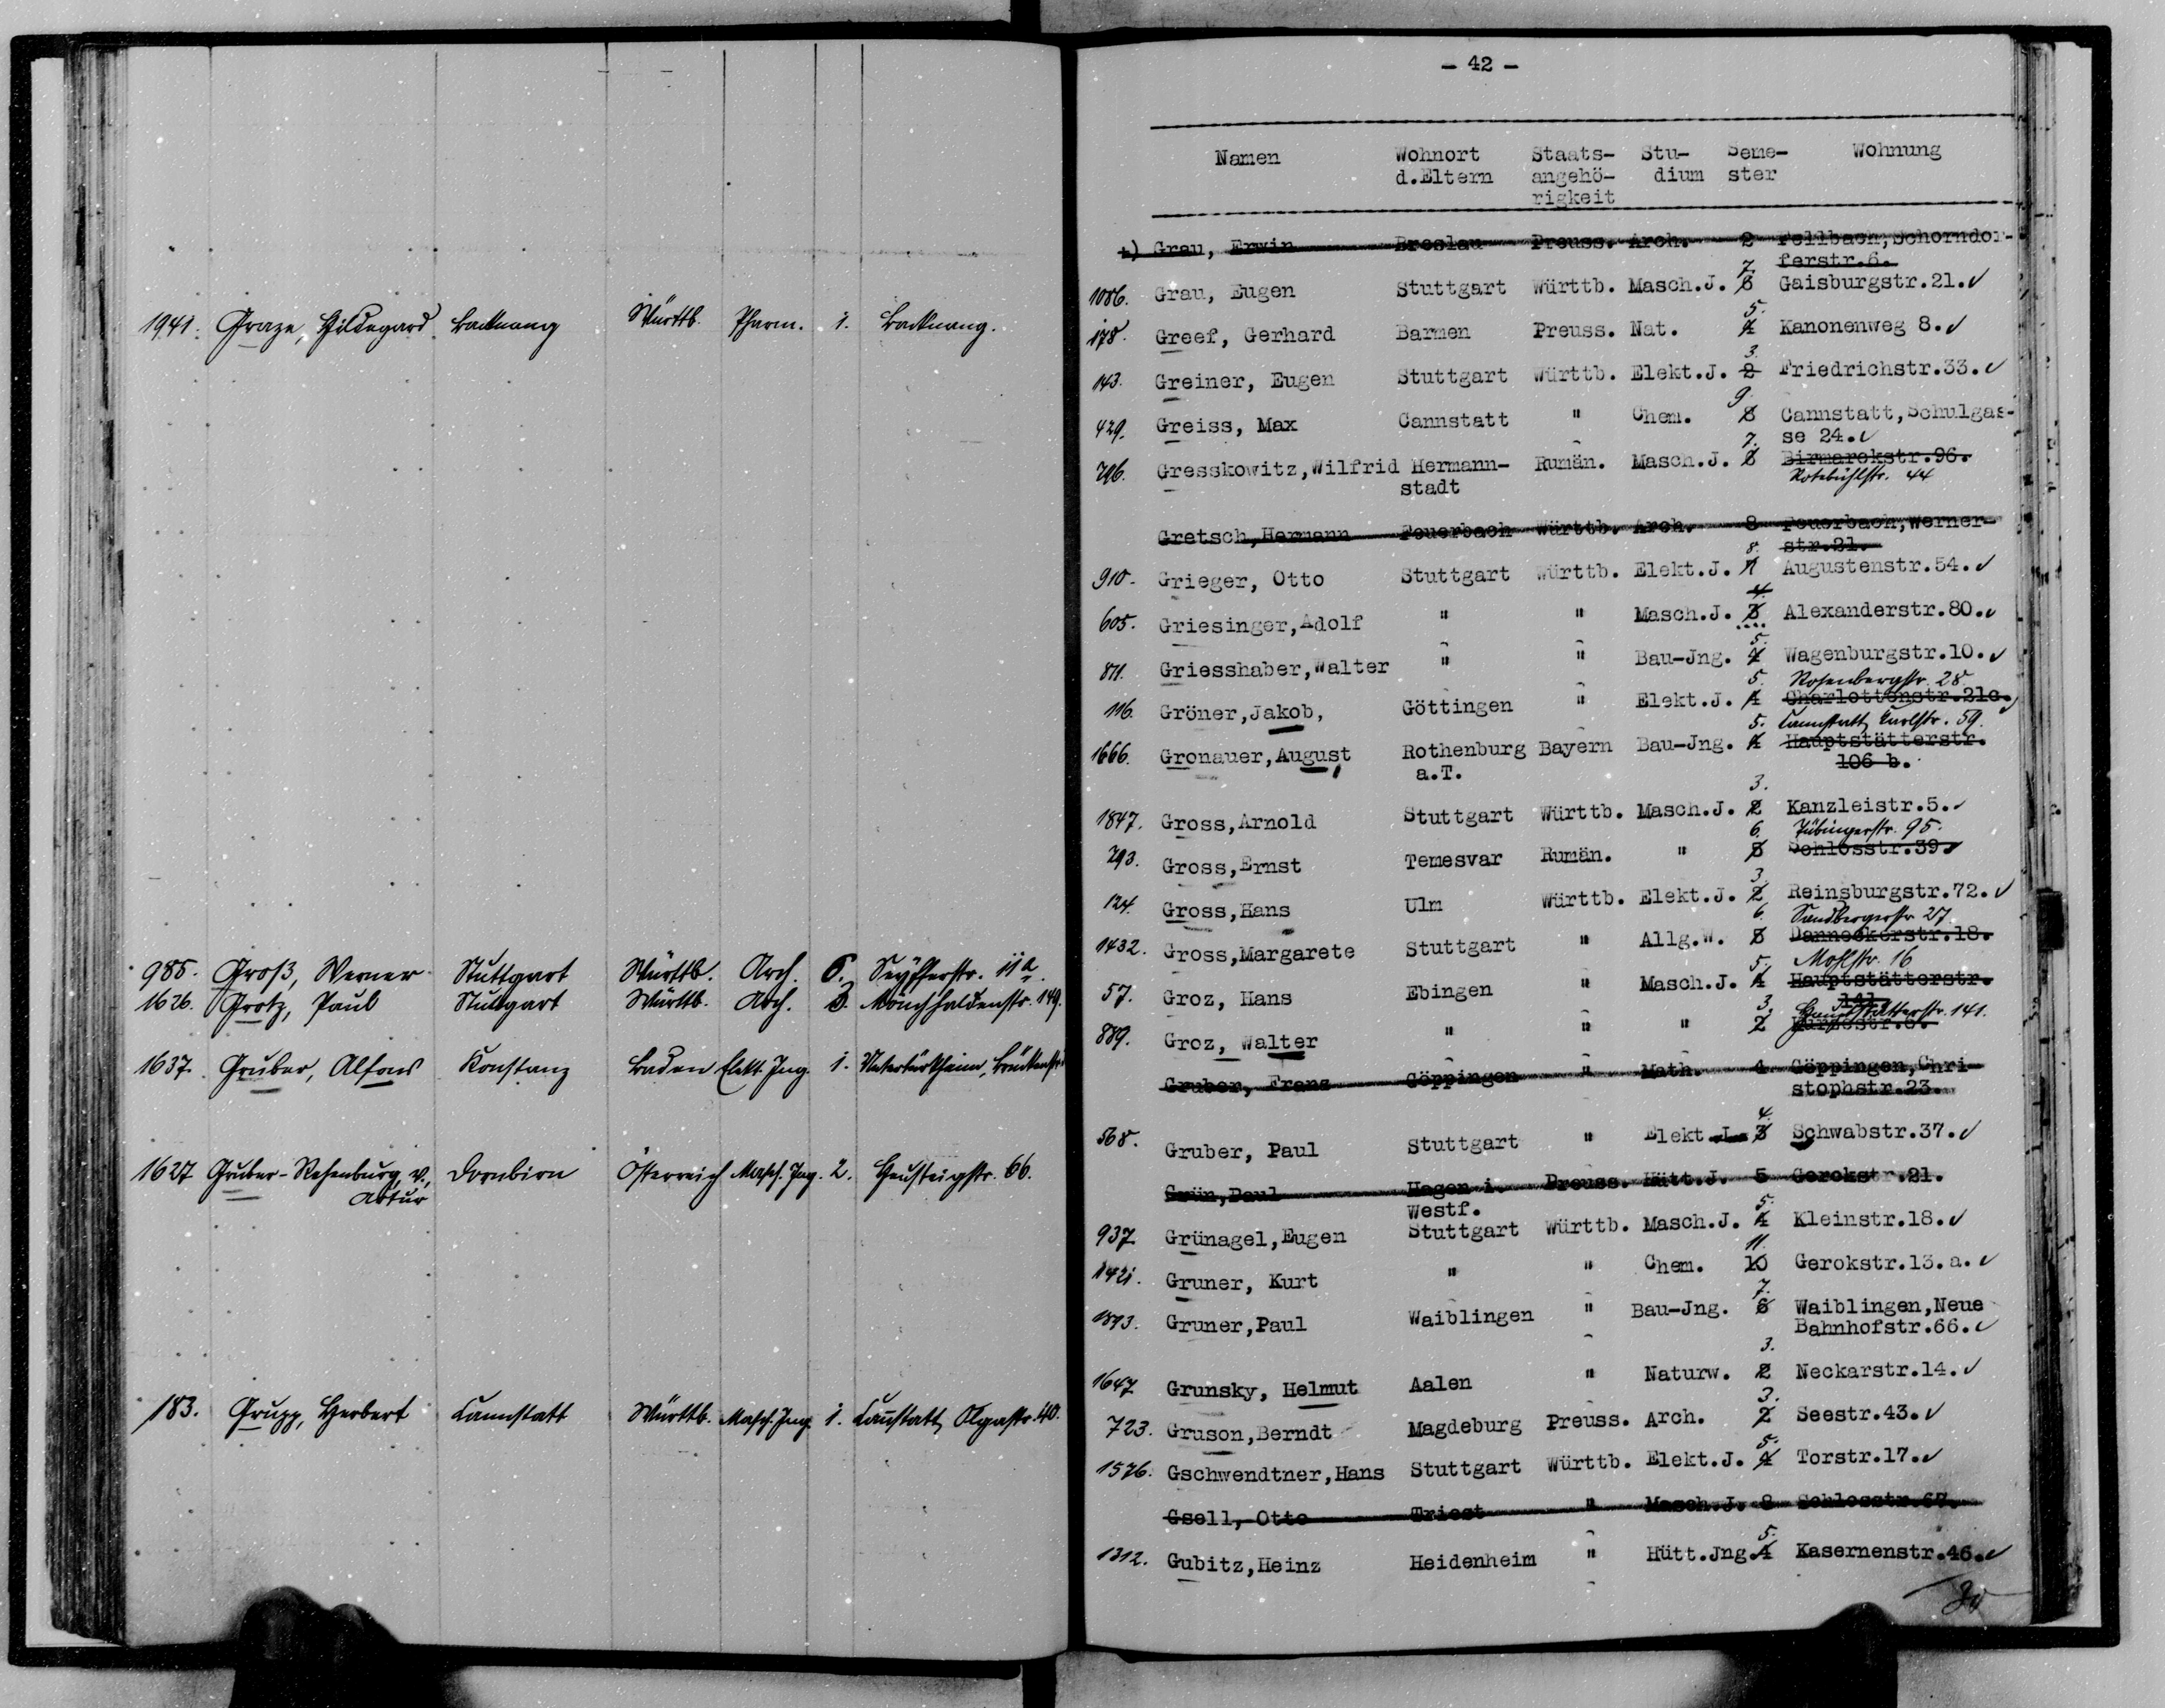 1941. Graze, Hildegard Backnang Württb. Pharm. 1. Backnang.
985. Groß, Werner Stuttgart Württb. Arch. 6. Seyfferstr. 11a
1626. Grotz, Paul Stuttgart Württb. Arch. 3. Mönchhaldenstr. 149.
1637. Gruber, Alfons Konstanz Baden Elekt. Ing. 1. Untertürkheim,
1627 Gruber-Rehenburg, v., Dornbirn Österreich Masch. Ing. 2. Heusteigstr. 66.
Artur
183. Grupp, Herbert Cannstatt Württb. Masch. Ing. 1. Cannstatt, Olgastr. 40.
- 42 -
Namen Wohnort Staats- Stu- Seme- Wohnung
d.Eltern angehö- dium ster
rigkeit
Grau, Erwin Breslau Preuss. Arch. 2 Fellbach, Schorndor-
7. ferstr.6.
1086. Grau, Eugen Stuttgart Württb. Masch.J. 6 Gaisburgstr.21. ✓
5.
178. Greef, Gerhard Barmen Preuss. Nat. 4 Kanonenweg 8. ✓
3.
143. Greiner, Eugen Stuttgart Württb. Elekt.J. 2 Friedrichstr.33. ✓
9.
429. Greiss, Max Cannstatt " Chem. 8 Cannstatt,Schulgas-
7. se 24. ✓
796. Gresskowitz,Wilfrid Hermann- Rumän. Masch.J. 6 Birmarckstr.96.
stadt Rotebühlstr. 44
Gretsch,Hermann Feuerbach Württb. Arch. 8 Feuerbach,Werner-
8. str.21.
910. Grieger, Otto Stuttgart Württb. Elekt.J. Augustenstr.54. ✓
4.
605. Griesinger,Adolf " " Masch.J. 3 Alexanderstr.80. ✓
5.
871. Griesshaber,Walter " " Bau-Jng. 4 Wagenburgstr.10. ✓
5. Rosenbergstr. 28
116. Gröner,Jakob, Göttingen " Elekt.J. 4 Charlottenstr.21c.
5. Cannstatt, Karlstr. 59.
1666. Gronauer,August Rothenburg Bayern Bau-Jng. 4 Hauptstätterstr.
a.T. 106 b.
3.
1847. Gross,Arnold Stuttgart Württb. Masch.J. 2 Kanzleistr.5. ✓
6. Tübingerstr. 95.
793. Gross,Ernst Temesvar Rumän. " 5 Schlosstr.39.
3.
124. Gross,Hans Ulm Württb. Elekt.J. 2 Reinsburgstr.72. ✓
6. Sandbergerstr. 27
1432. Gross,Margarete Stuttgart " Allg.W. 5 Danneckerstr.18.
5. Mohlstr. 16
57. Groz, Hans Ebingen " Masch.J. 4 Hauptstätterstr.
141.
3. Hauptstätterstr. 141.
889. Groz, Walter " " " 2
Gruber, Franz Göppingen " Math. 4 Göppingen,Chri-
stophstr.23.
4.
568. Gruber, Paul Stuttgart " Elekt.J. 3 Schwabstr.37. ✓
Grün,Paul Hagen i. Preuss. Hütt.J. 5 Gerokstr.21.
Westf. 5.
937. Grünagel,Eugen Stuttgart Württb. Masch.J. 4 Kleinstr.18. ✓
11.
1421. Gruner, Kurt " " Chem. 10 Gerokstr.13.a. ✓
7.
1893. Gruner,Paul Waiblingen " Bau-Jng. 6 Waiblingen,Neue
Bahnhofstr.66. ✓
3.
1647 Grunsky, Helmut Aalen " Naturw. 2 Neckarstr.14. ✓
3.
723. Gruson,Berndt Magdeburg Preuss. Arch. 2 Seestr.43. ✓
5.
1576. Gschwendtner,Hans Stuttgart Württb. Elekt.J. 4 Torstr.17. ✓
Gsell, Otto Triest " Masch.J. 8 Schlosstr.67.
5.
1312. Gubitz,Heinz Heidenheim " Hütt.Jng. 4 Kasernenstr.46. ✓
30